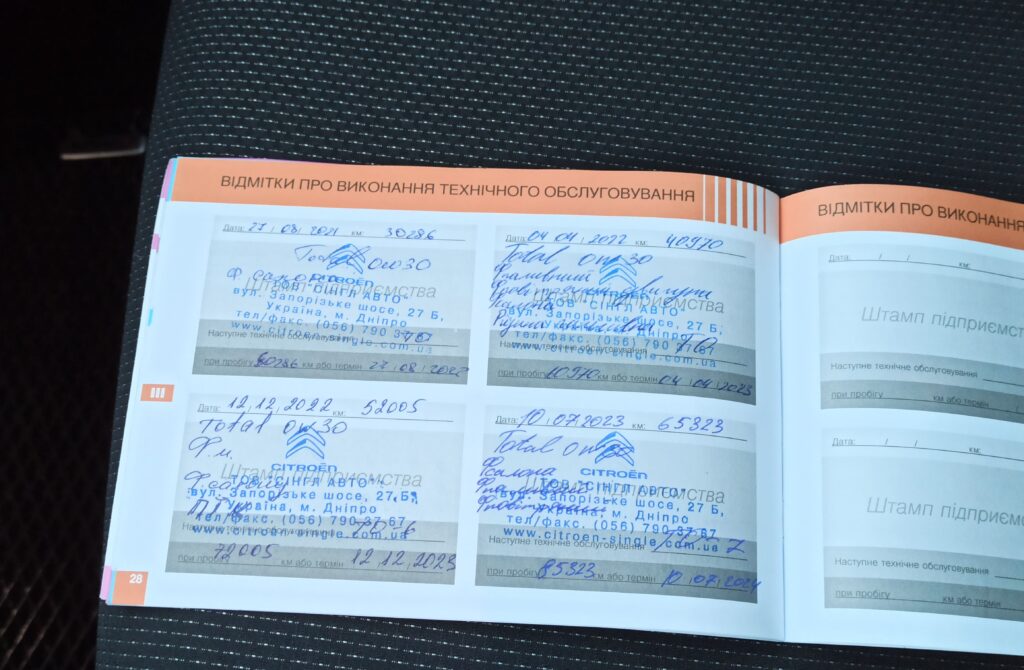 ВІДМІТКИ ПРО ВИКОНАННЯ ТЕХНІЧНОГО ОБСЛУГОВУВАННЯ
Дата: 27 / 08 / 2021 км: 30286
Total 0w30
Ф салона
CITROËN
Штамп підприємства
ТОВ "СІНГЛ АВТО"
вул. Запорізьке шосе, 27 Б,
Україна, м. Дніпро
тел/факс. (056) 790 37 67
Наступне технічне обслуговування
www.citroen-single.com.ua
при пробігу км або термін 27 / 08 / 2022
Дата: 04 / 04 / 2022 км: 40970
Total 0w30
Штамп підприємства
ТОВ "СІНГЛ АВТО"
вул. Запорізьке шосе, 27 Б,
Україна, м. Дніпро
тел/факс. (056) 790 37 67
Наступне технічне обслуговування
www.citroen-single.com.ua
при пробігу км або термін 04 / 04 / 2023
Дата: 12 / 12 / 2022 км: 52005
Total 0w30
Ф м.
CITROËN
Штамп підприємства
Ф салона
ТОВ "СІНГЛ АВТО"
вул. Запорізьке шосе, 27 Б,
Україна, м. Дніпро
тел/факс. (056) 790 37 67
Наступне технічне обслуговування
www.citroen-single.com.ua
при пробігу 72005 км або термін 12 12 2023
Дата: 10 / 07 / 2023 км: 65323
Total
CITROËN
Ф салона
Штамп підприємства
ТОВ "СІНГЛ АВТО"
вул. Запорізьке шосе, 27 Б,
Україна, м. Дніпро
тел/факс. (056) 790 37 67
Наступне технічне обслуговування
www.citroen-single.com.ua
при пробігу 85323 км або термін 10 / 07 / 2024
28
ВІДМІТКИ ПРО ВИКОНАННЯ
Дата: / / км:
Штамп підприємст
Наступне технічне обслуговування
при пробігу км або термін
Дата: / / км:
Штамп підприємст
Наступне технічне обслуговування
при пробігу км або термін